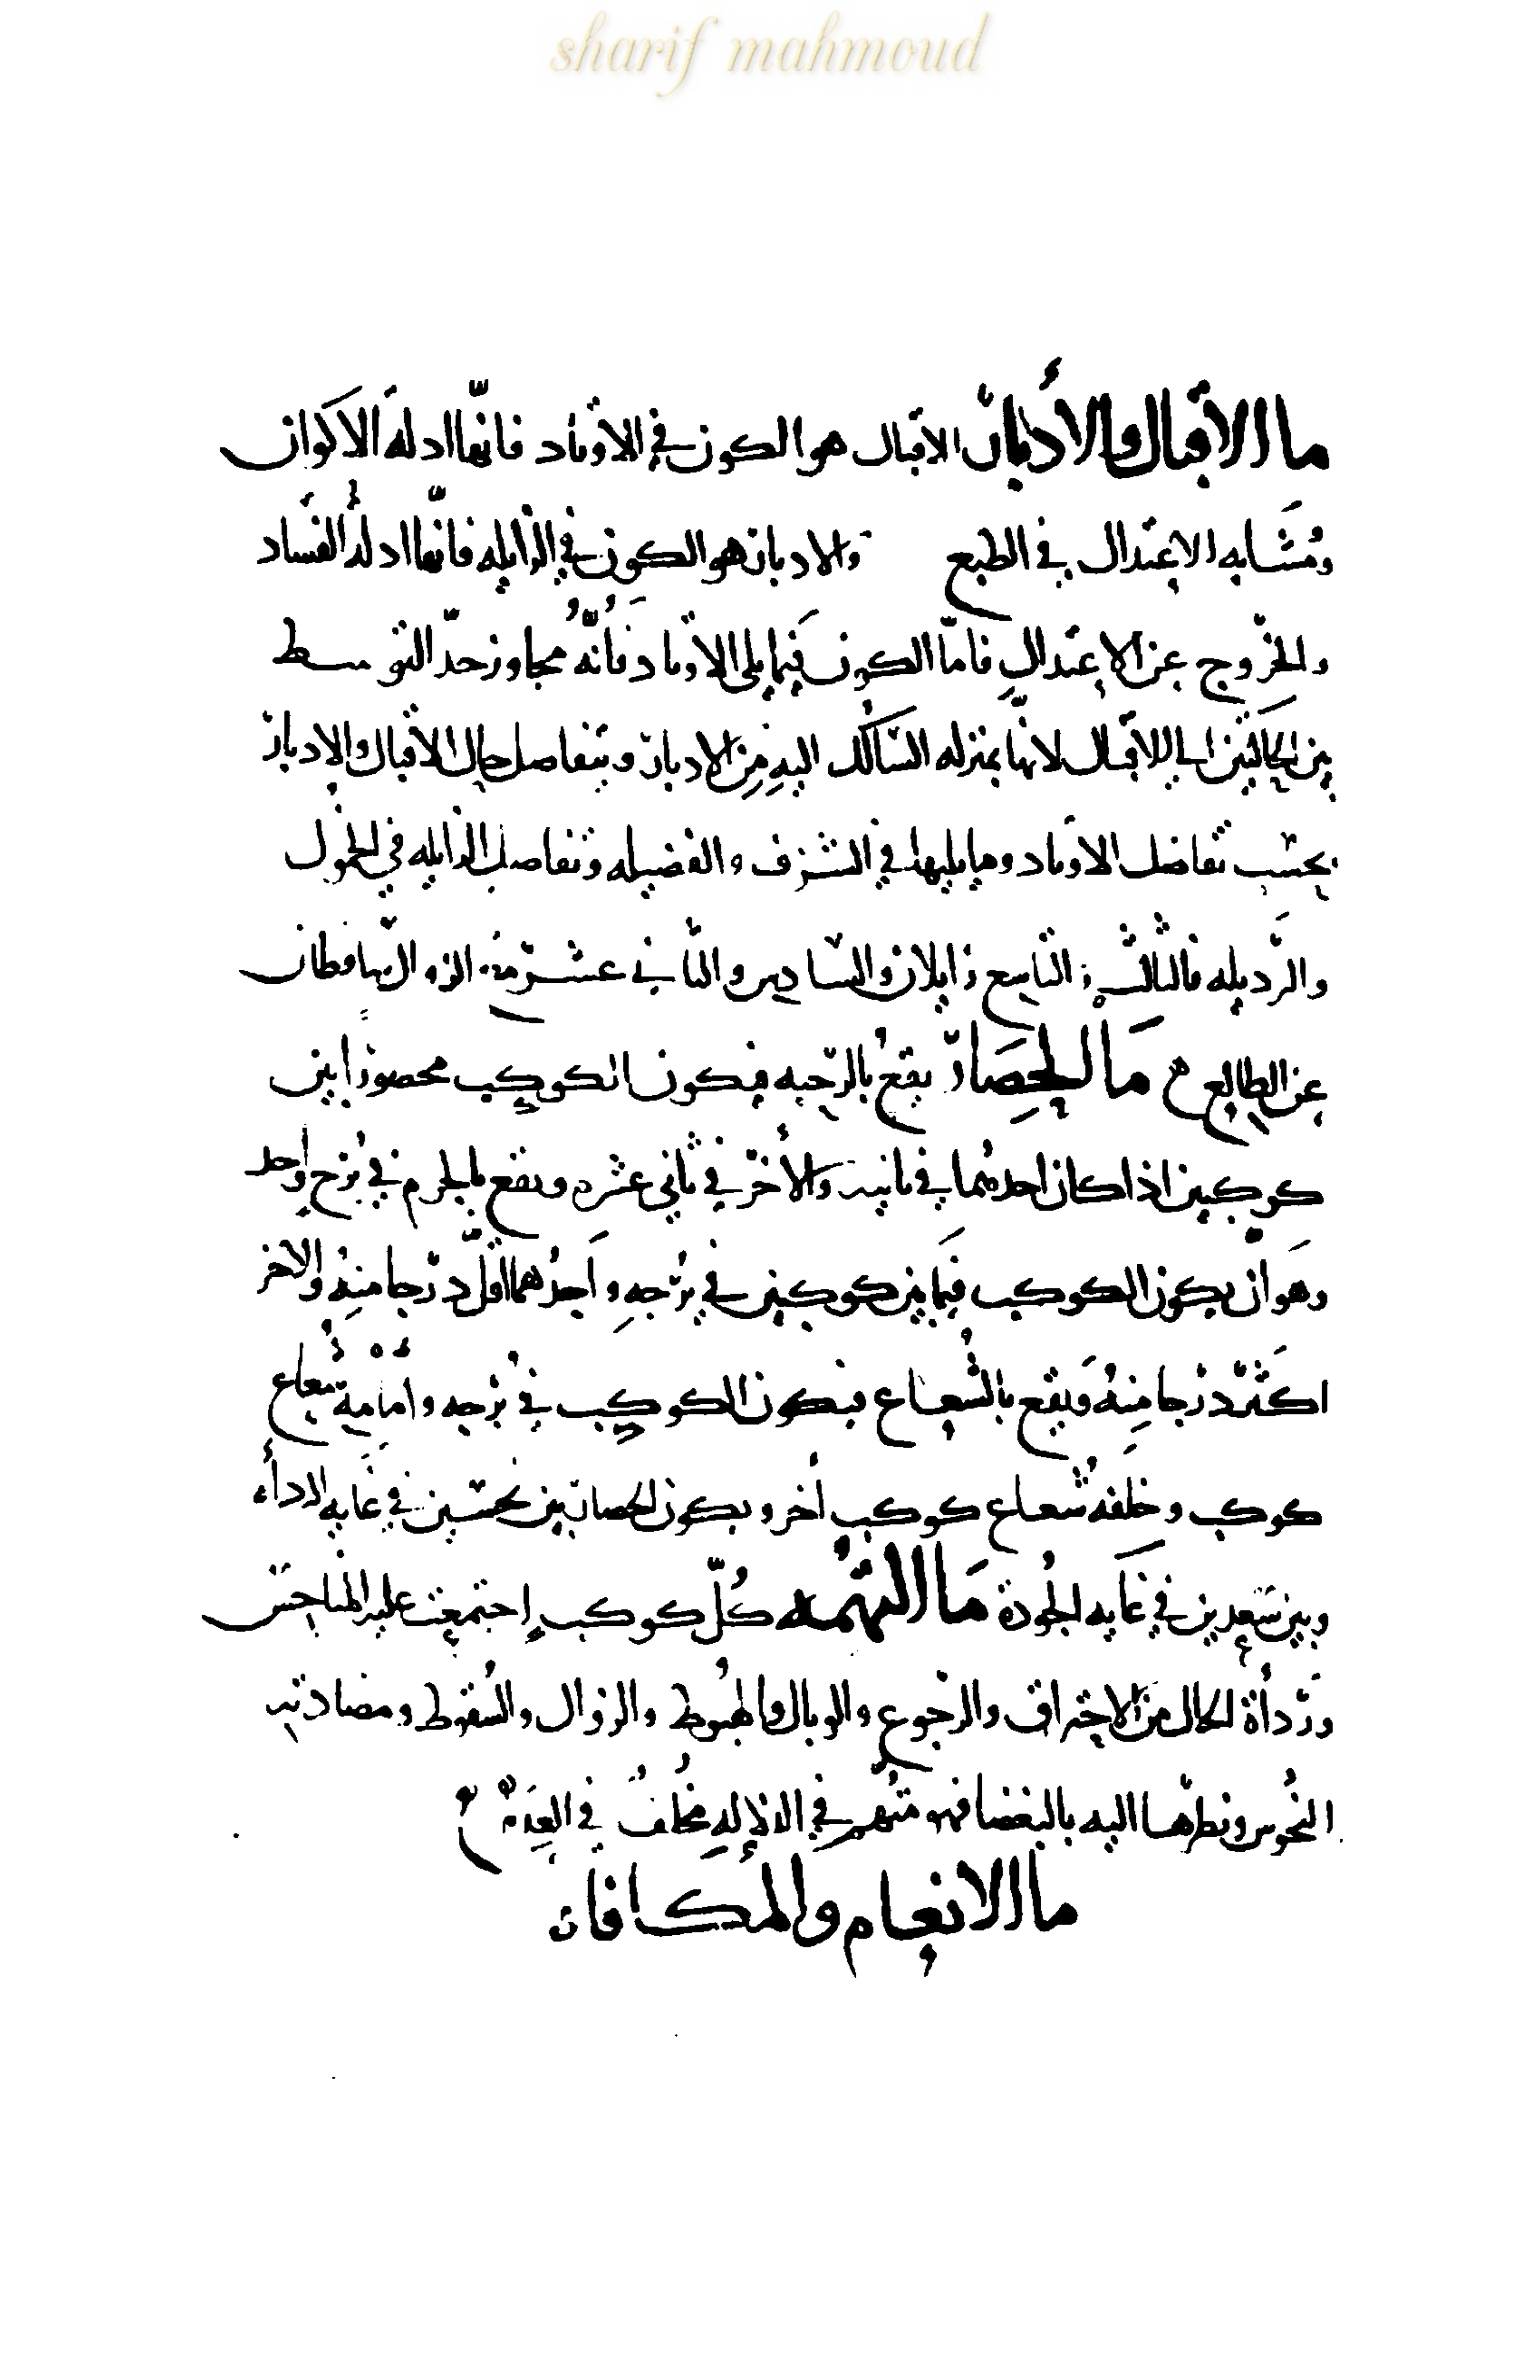 sharif mahmoud
ما الاقبال والأدبار الاقبال هو الكون في الاوتاد فانّها ادلة الاكوان
ومُشَابه الاعتدال في الطبع والادبار هو الكون في الزايله فانّها ادلة الفساد
والخروج عن الاعتدال فامّا الكون فيما يلى الاوتاد فانّه مجاوز حدّ التوسط
بين الحالتين الى الاقبال لانّها بمنزله السّالك اليه من الادبار ويتفاضل حال الاقبال والادبار
بحسب تفاضل الاوتاد وما يليها في الشرف والفضيله وتفاضل الزايله في الخمول
والرّذيله فالثالث والتاسع زايلان والسّادس والثاني عشر مع الزوال ساقطان
عن الطالع مَا الحِصَار يقعُ بالبرجيه فيكون الكوكب محصورًا بين
كوكبين اذا كان احدهما في ثانيه والأخر في ثاني عشره ويقع بالجرم في بُرج واحد
وهو ان يكون الكوكب فيما بين كوكبين في بُرجه واحدُهما اقلّ درجا منهُ والاخر
اكثر درجا منهُ ويقع بالشعاع فيكون الكوكب في بُرجه وامامه شعاع
كوكب وخلفهُ شعاع كوكب أخر ويكون الحصار بين نحسين في غايه الرداءة
وبين سَعدين في غايه الجُودة مَا التهمه كُلّ كوكب اجتمعت عليه المناحس
ورَدأة الحال من الاحتراق والرجوع والوبال والهبوط والزوال والسُقوط ومضادته
النحُوس ونظرها اليه بالبغضا فهو متهم في الدلاله مخلف في العِدَه
ما الانعام والمكافاة